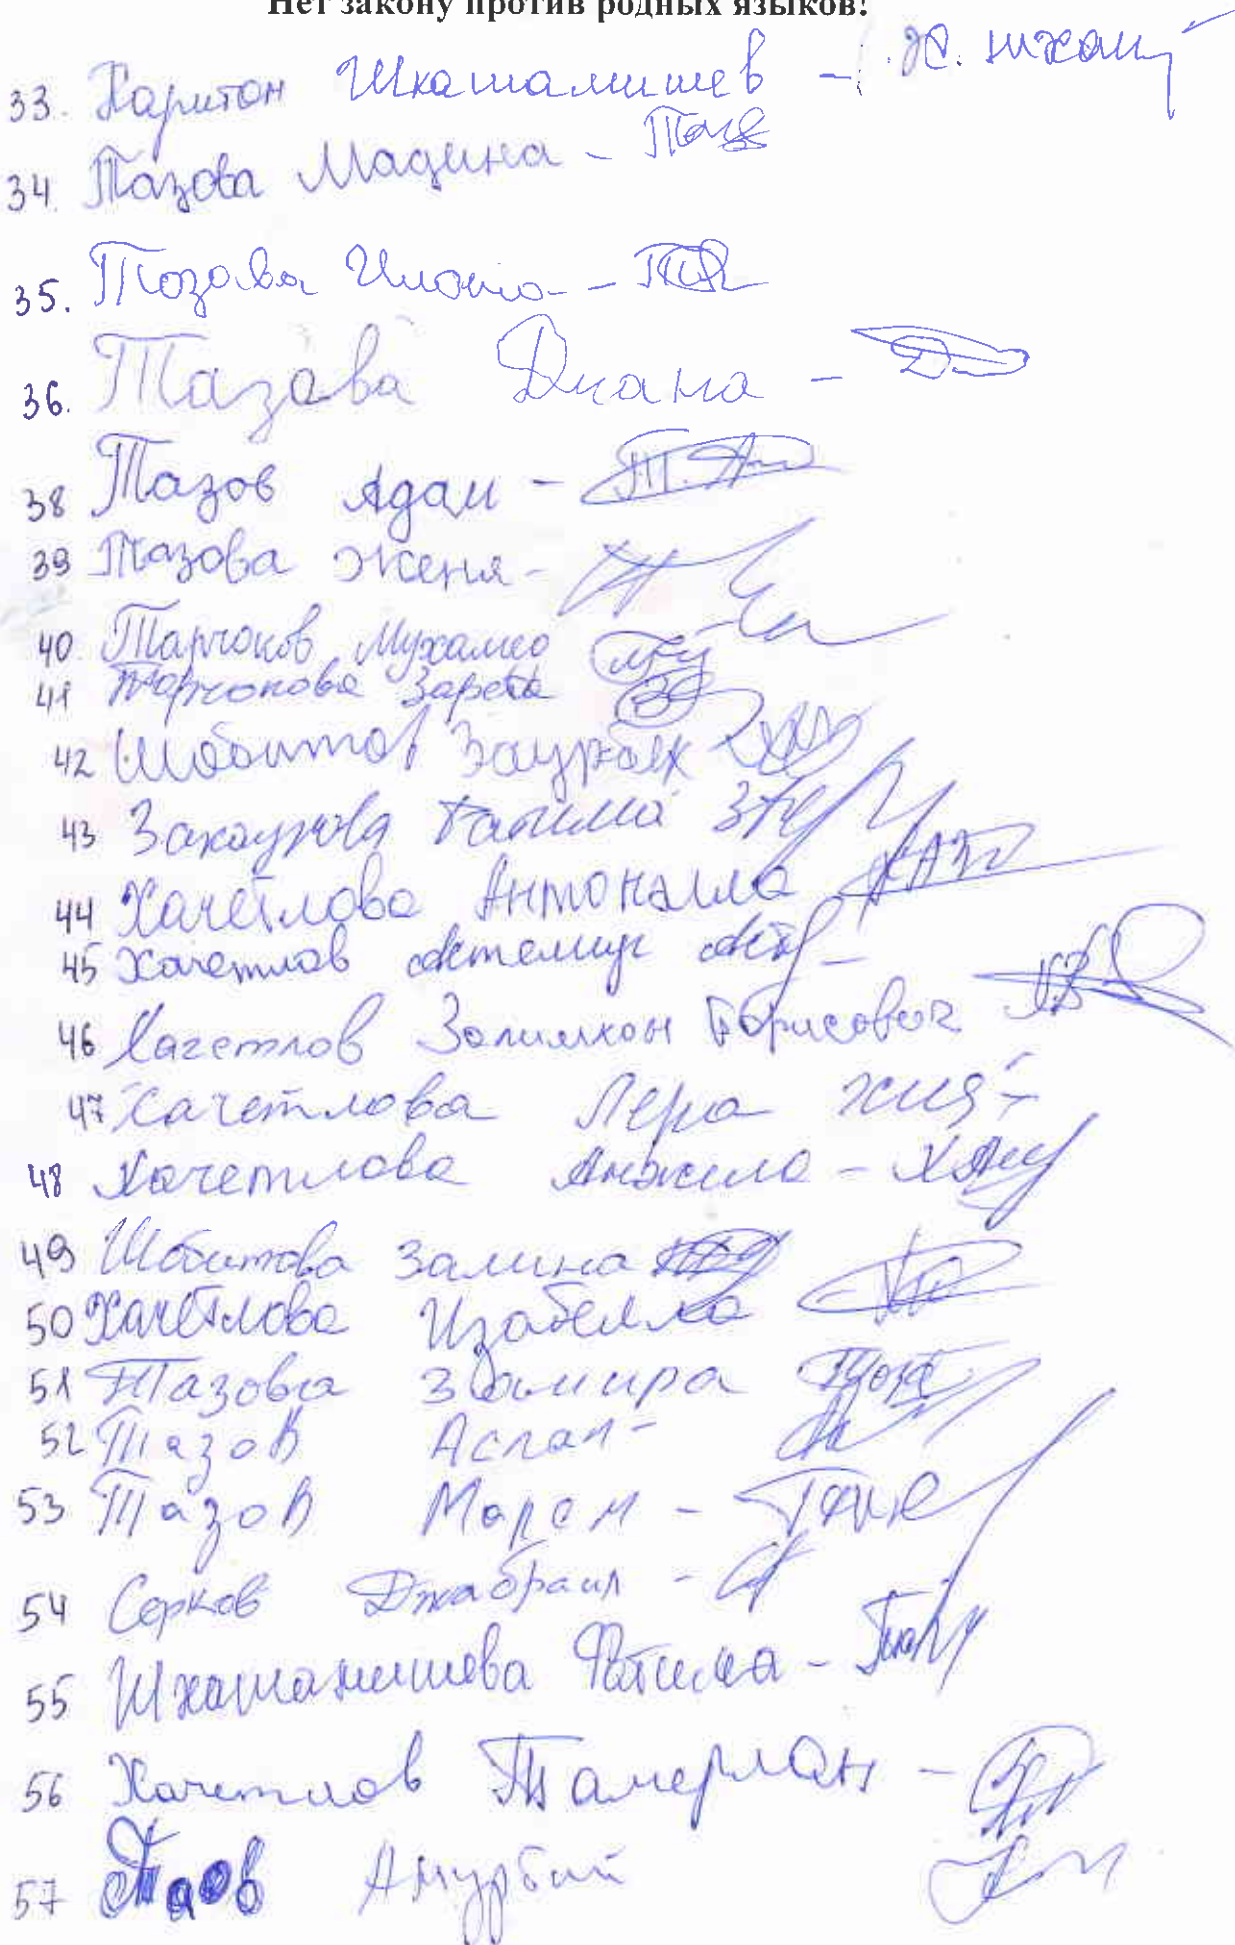 Нет закону против родных языков!
33. Харитон Шкашамишев - Х. шхаш
34. Тазова Мадина -
35. Тозова Илона -
36. Тазова Диана -
38 Тазов Адам - Т.А
39 Тазова Женя -
40 Тарчоков Мухамед
41 Тарчокова Зарета
42 Шобитов Заурбек
43 Закаунова Фатима
44 Хачетлова Антонэлла
45 Хачетлов Актемир
46 Хачетлов Залимхан Борисович
47 Хачетлова Лера
48 Хачетлова Анжела -
49 Шобитова Залина
50 Хачетлова Изабелла
51 Тазова Замира
52 Тазов Аслан -
53 Тазов Марем -
54 Серков Джабраил -
55 Шхашамишева Фатима -
56 Хачетлов Тамерлан -
57 Таов Амурбий